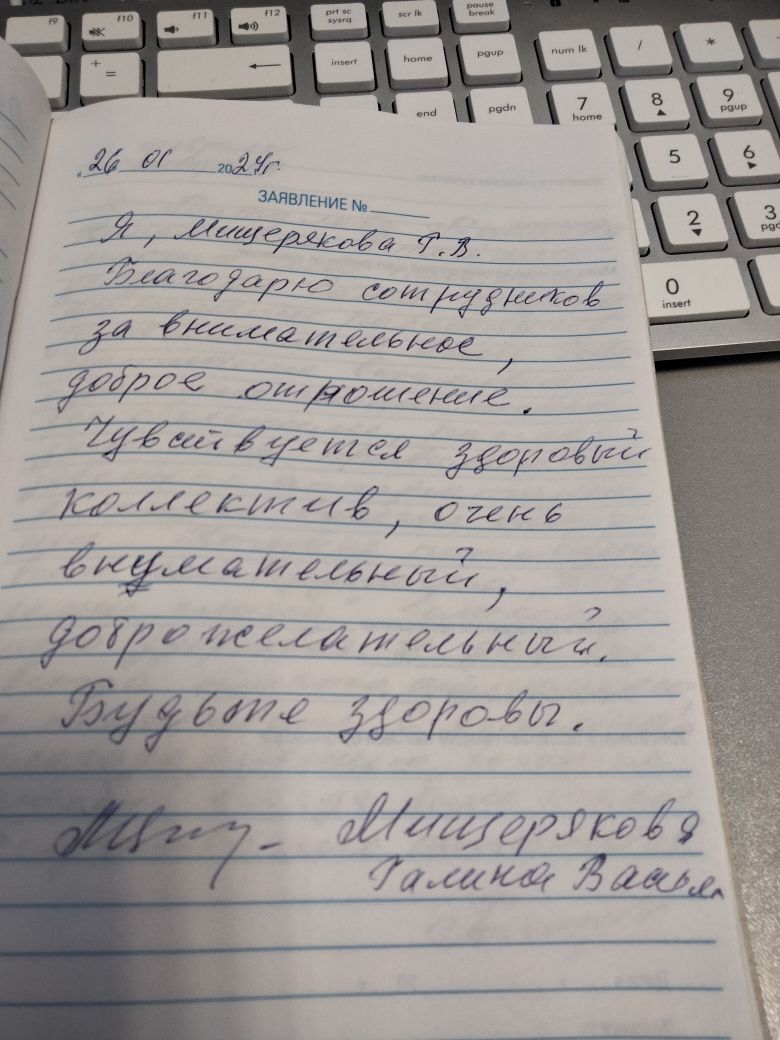 f9 f10 f11 f12 prt sc sysrq scr lk pause break
+ = insert home pgup num lk / *
end pgdn 7 home 8 9 pgup
5 6
2 3
0 insert
„26 01 2024г.
ЗАЯВЛЕНИЕ № ______
Я, Мищерякова Г.В.
Благодарю сотрудников
за внимательное,
доброе отношение.
Чувствуется здоровый
коллектив, очень
внимательный,
доброжелательный.
Будьте здоровы.
Мищерякова
Галина